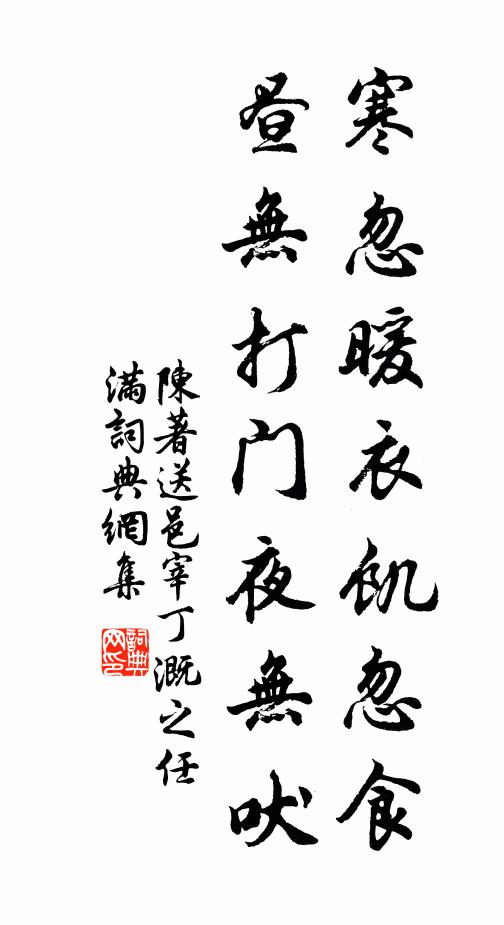 寒忽暖衣飢忽食
昼無打門夜無吠
陳著送邑宰丁溉之任
滿詞典網集
詞典网印